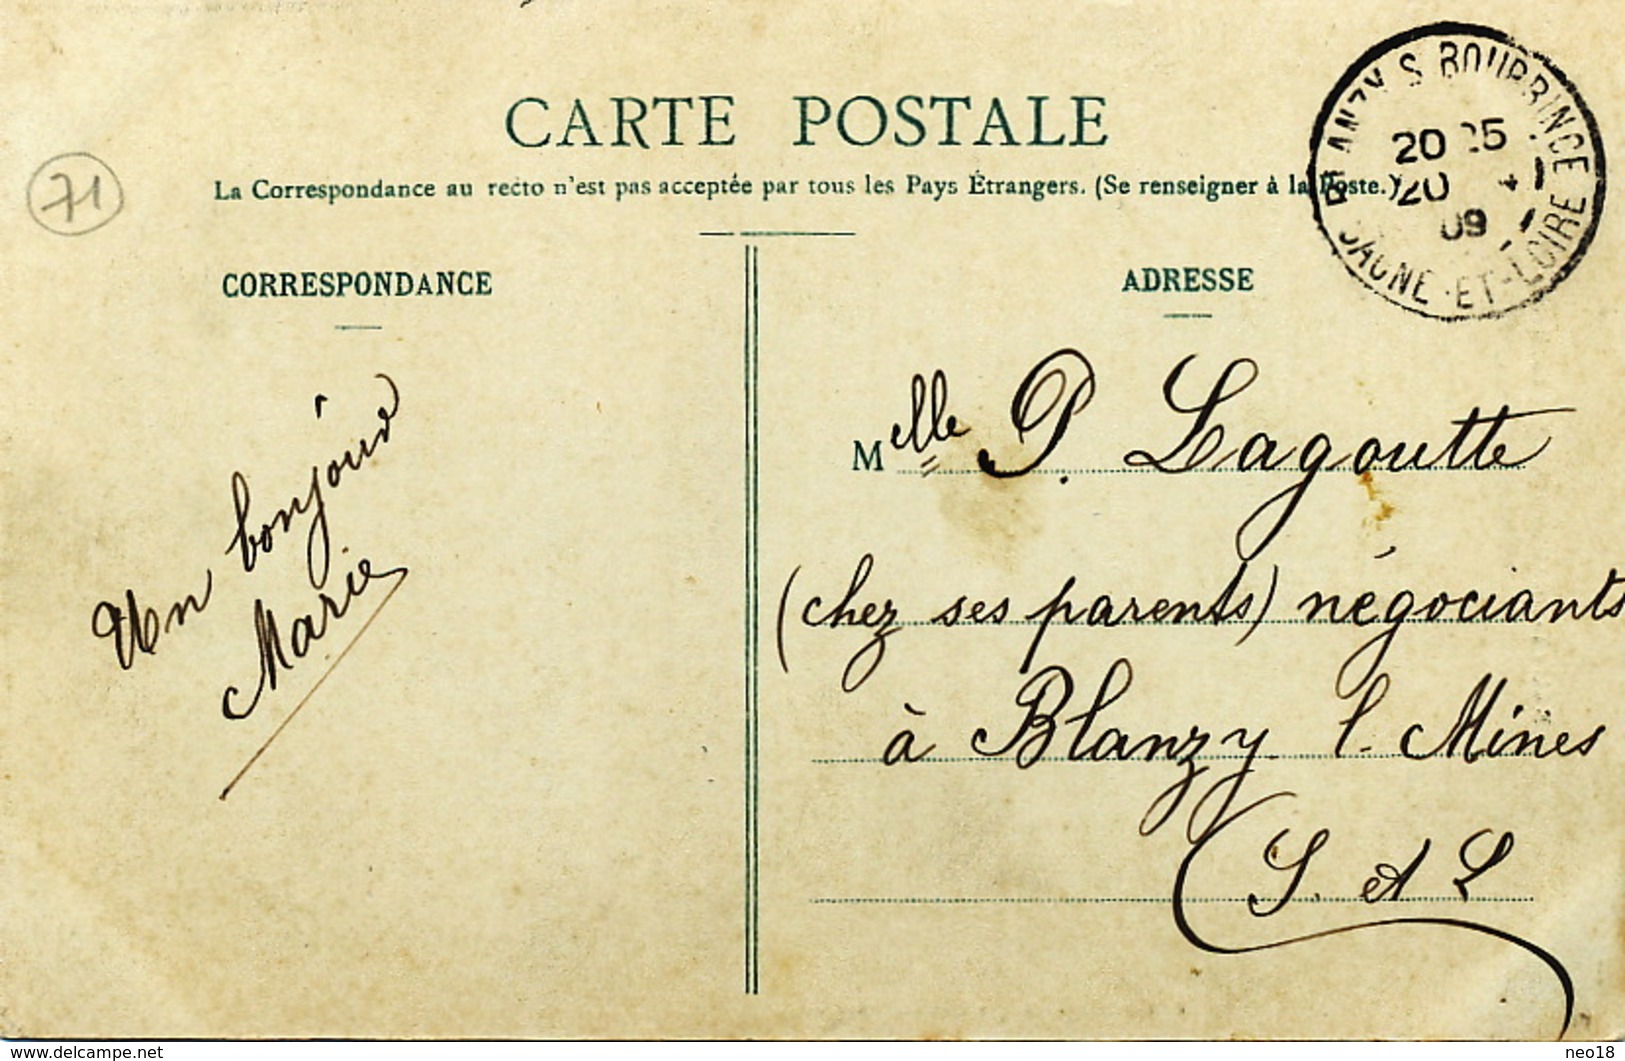 CARTE POSTALE
La Correspondance au recto n'est pas acceptée par tous les Pays Étrangers. (Se renseigner à la Poste.)
71
BLANZY S BOURBINCE
20 25
20 4
09
SAONE-ET-LOIRE
CORRESPONDANCE
Un bonjour
Marie
ADRESSE
Melle P. Lagoutte
(chez ses parents) négociants
à Blanzy l. Mines
S. et L
www.delcampe.net
neo18